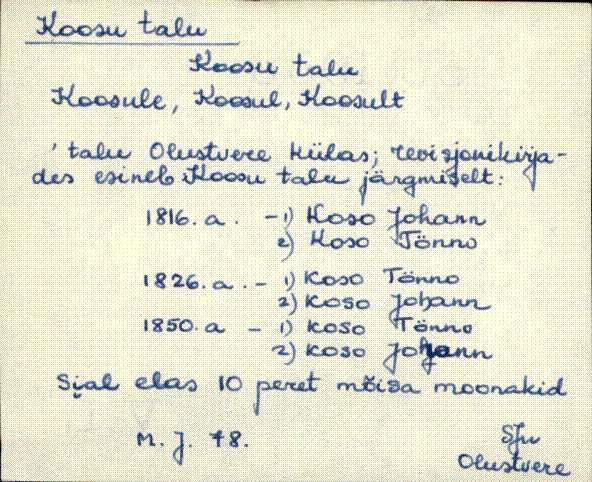 Koosu talu
Koosu talu
Koosule, Koosul, Koosult
'talu Olustvere külas; revisjonikirja-
des esineb Koosu talu järgmiselt:
1816. a. - 1) Koso Johann
2) Koso Tõnno
1826. a. - 1) Koso Tõnno
2) Koso Johann
1850. a - 1) Koso Tõnno
2) Koso Johann
Sial elas 10 peret mõisa moonakid
M. J. 78.
SJn
Olustvere